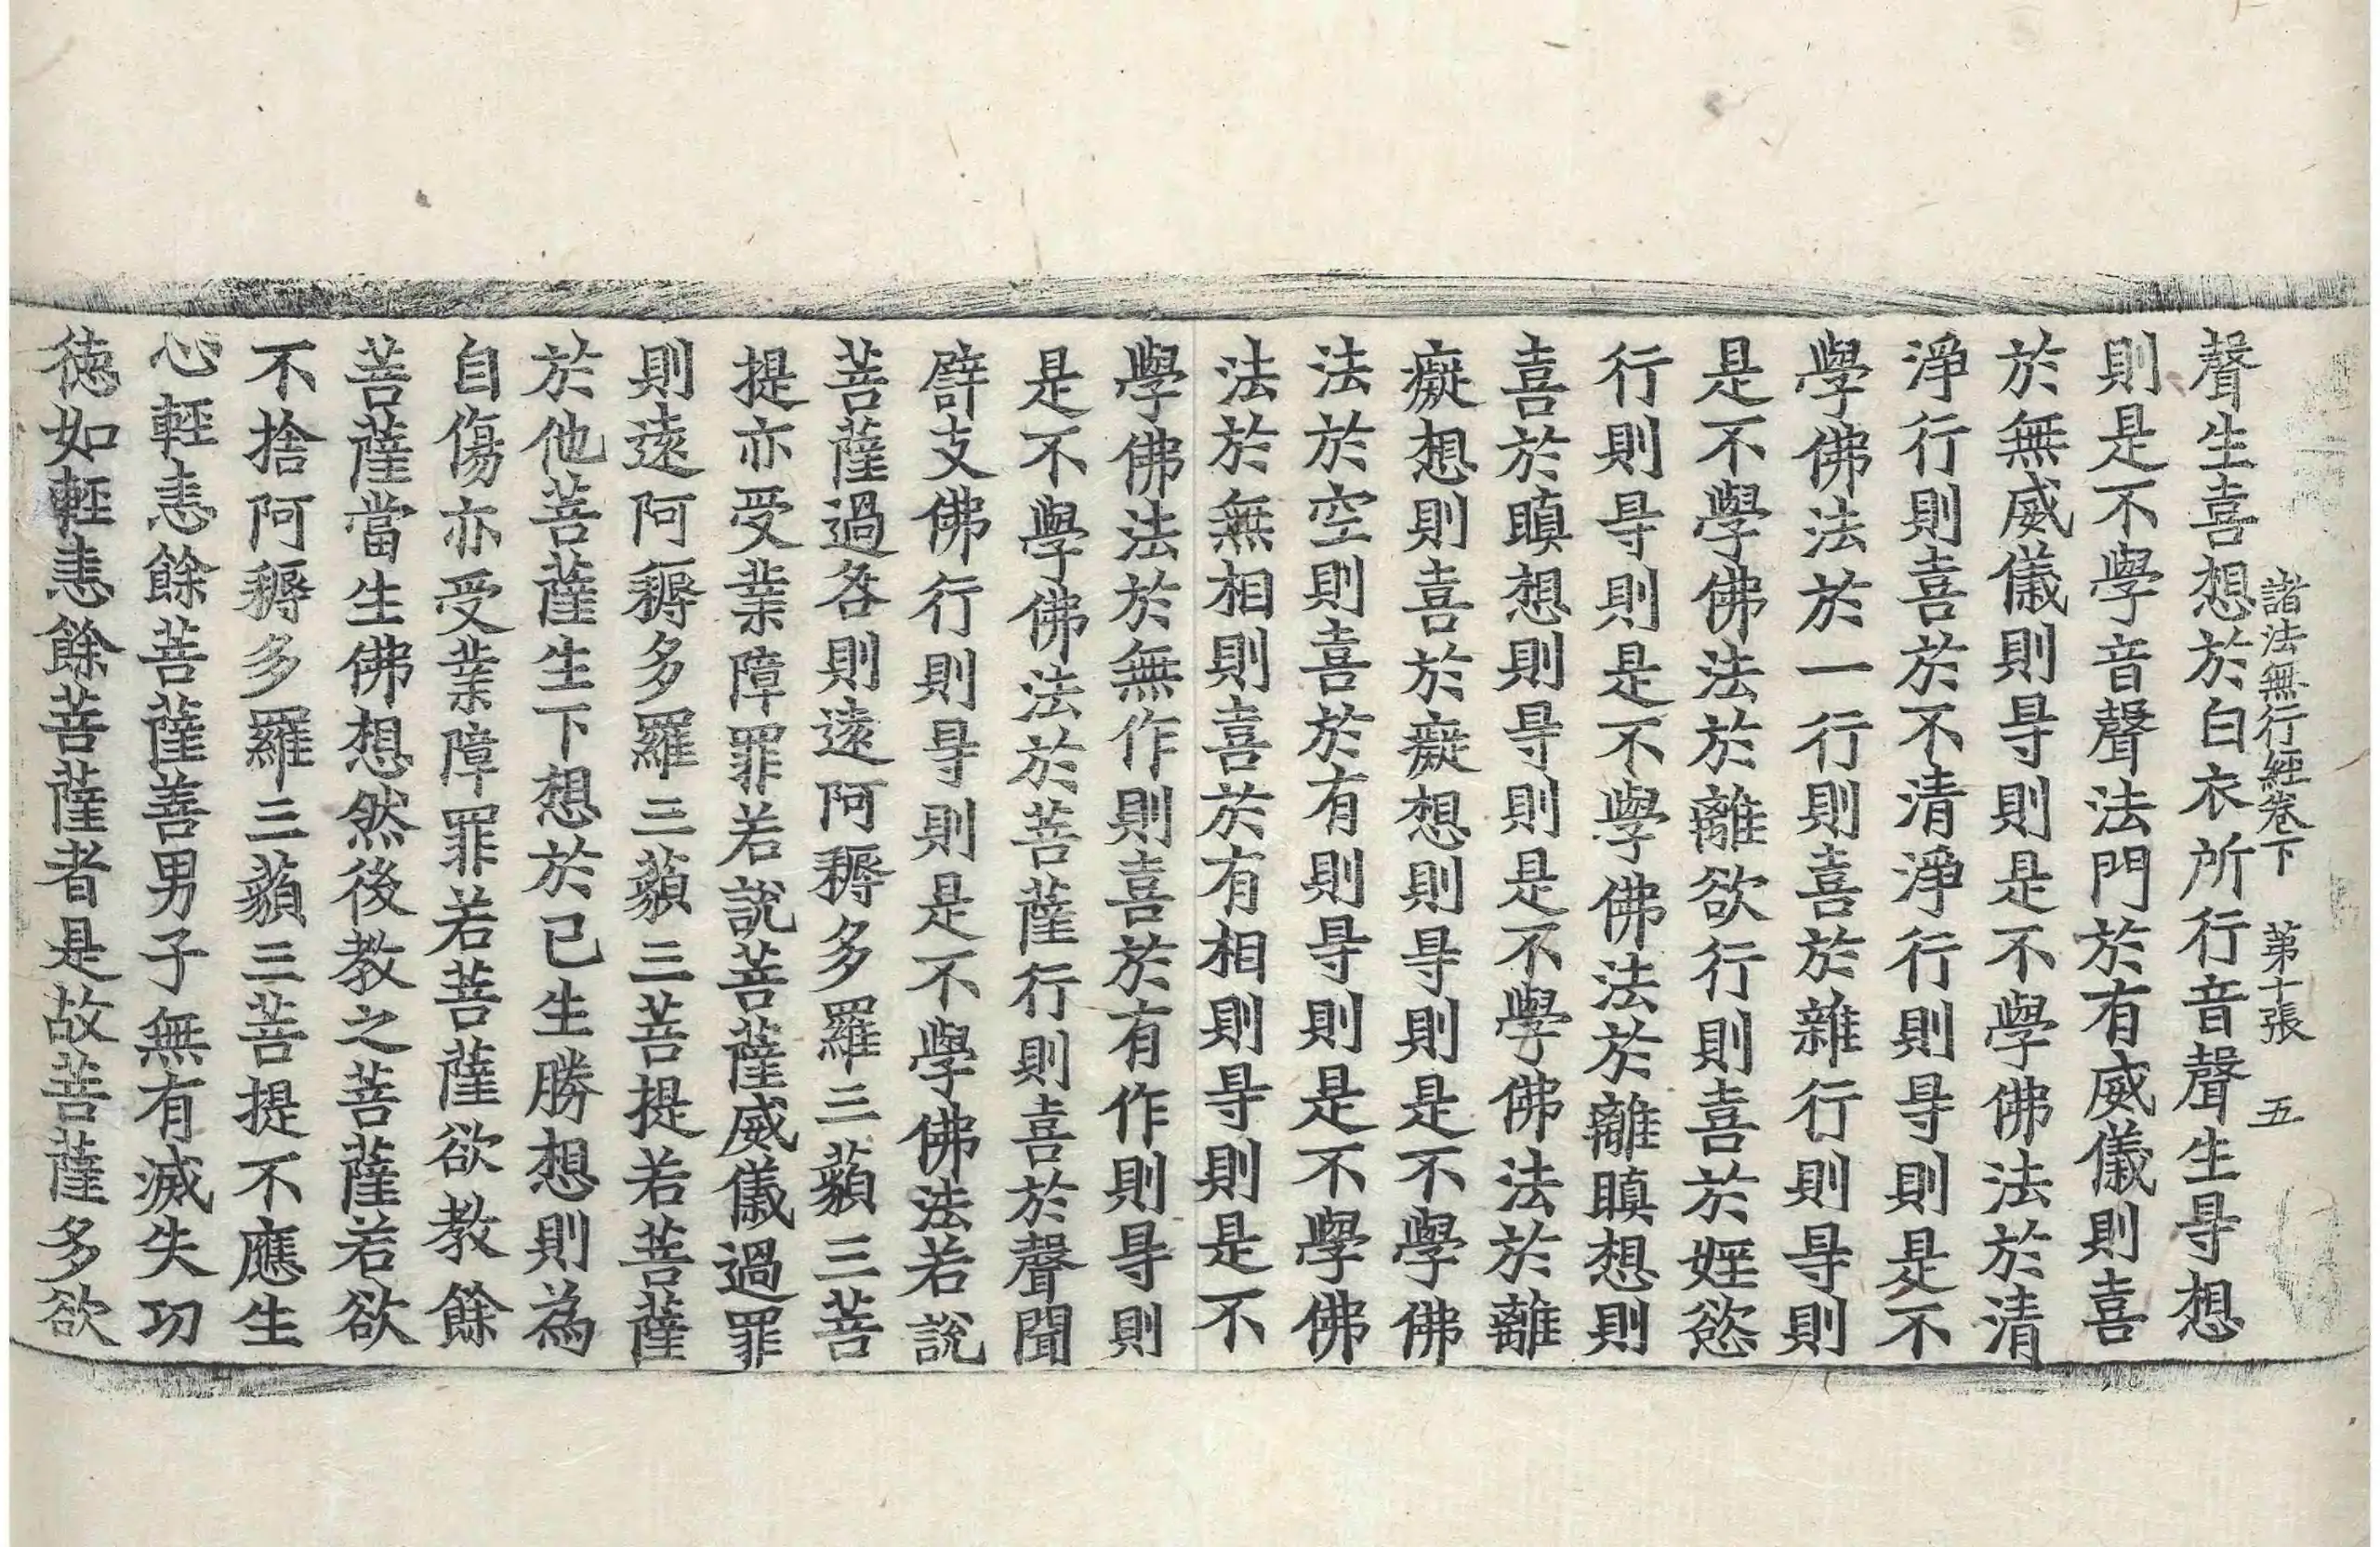 諸法無行經卷下 第十張 五
聲生喜想於白衣所行音聲生㝵想
則是不學音聲法門於有威儀則喜
於無威儀則㝵則是不學佛法於清
淨行則喜於不清淨行則㝵則是不
學佛法於一行則喜於雜行則㝵則
是不學佛法於離欲行則喜於婬慾
行則㝵則是不學佛法於離瞋想則
喜於瞋想則㝵則是不學佛法於離
癡想則喜於癡想則㝵則是不學佛
法於空則喜於有則㝵則是不學佛
法於無相則喜於有相則㝵則是不
學佛法於無作則喜於有作則㝵則
是不學佛法於菩薩行則喜於聲聞
辟支佛行則㝵則是不學佛法若說
菩薩過咎則遠阿耨多羅三藐三菩
提亦受業障罪若說菩薩威儀過罪
則遠阿耨多羅三藐三菩提若菩薩
於他菩薩生下想於己生勝想則為
自傷亦受業障罪若菩薩欲教餘
菩薩當生佛想然後教之菩薩若欲
不捨阿耨多羅三藐三菩提不應生
心輕恚餘菩薩善男子無有滅失功
德如輕恚餘菩薩者是故菩薩多欲